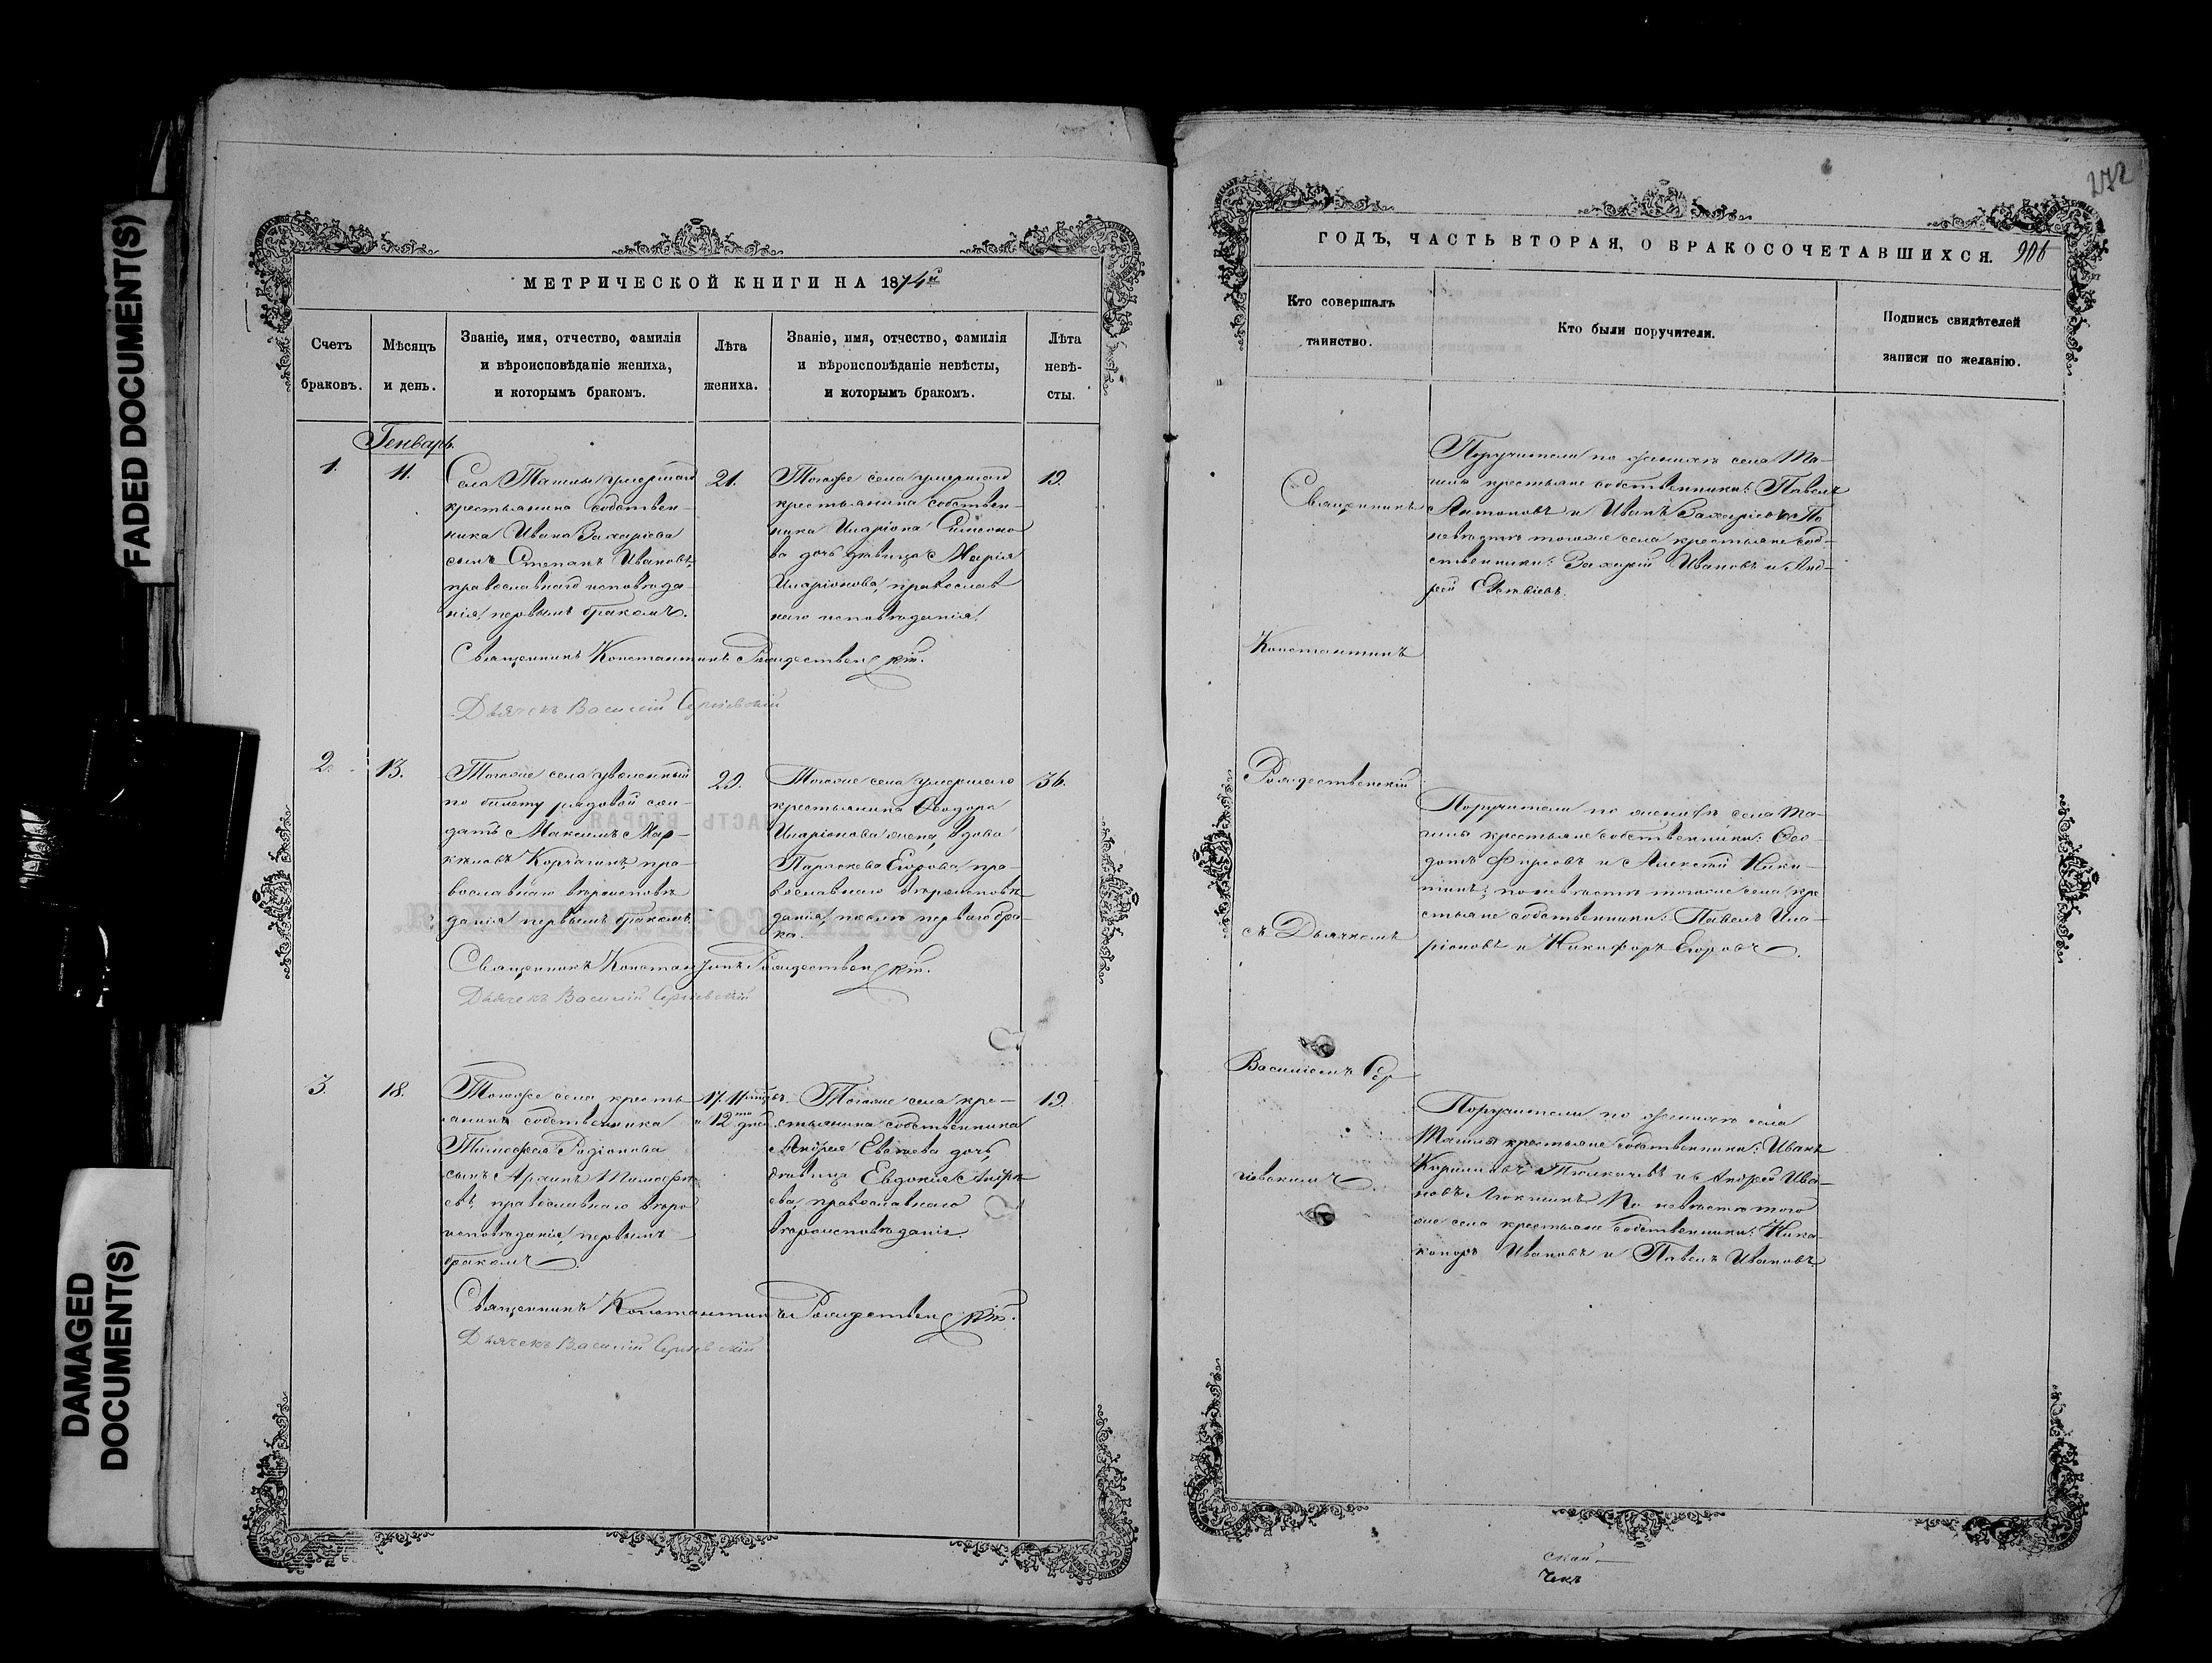 FADED DOCUMENT(S)
DAMAGED
DOCUMENT(S)
МЕТРИЧЕСКОЙ КНИГИ НА 1874й
Счетъ
браковъ.
Мѣсяцъ
и день.
Званіе, имя, отчество, фамилія
и вѣроисповѣданіе жениха,
и которымъ бракомъ.
Лѣта
жениха.
Званіе, имя, отчество, фамилія
и вѣроисповѣданіе невѣсты,
и которымъ бракомъ.
Лѣта
невѣ-
сты.
Генварь.
1.
11.
Села умершаго
крестьянина собствен-
ника Ивана Захаріева
сынъ Степанъ Ивановъ,
православнаго исповѣда-
нія, первымъ бракомъ.
21.
Тогоже села умершаго
крестьянина собствен-
ника Иларіона Симеоно-
ва дочь дѣвица Марія
Иларіонова, православ
наго исповѣданія.
19.
Священникъ Константинъ Рождественскій.
Дьячекъ Василій Сергіевскій
2.
13.
Тогоже села уволенный
по билету рядовой сол-
датъ Максимъ Мар-
кѣловъ Корчагинъ, пра-
вославнаго вѣроисповѣ
данія первымъ бракомъ.
29.
Тогоже села умершаго
крестьянина Ѳеодора
Иларіонова жена, вдова
Параскева Егорова, пра-
вославнаго вѣроисповѣ
данія, послѣ перваго бра-
ка.
36.
Священникъ Константинъ Рождественскій.
Дьячекъ Василій Сергіевскій
3.
18.
Тогоже села кресть-
янина собственника
Тимофея Родіонова
сынъ Тимофѣ-
евъ, православнаго вѣро
исповѣданія, первымъ
бракомъ.
17. 11
и 12 дней
Тогоже села кре-
стьянина собственника
Андрея Евсѣева дочь,
дѣвица Евдокія Андре
ева, православнаго
вѣроисповѣданія.
19.
Священникъ Константинъ Рождественскій.
Дьячекъ Василій Сергіевскій
272
ГОДЪ, ЧАСТЬ ВТОРАЯ, О БРАКОСОЧЕТАВШИХСЯ.
Кто совершалъ
таинство.
Кто были поручители.
Подпись свидѣтелей
записи по желанію.
Священникъ
Константинъ
Рождественскій
съ Дьячкомъ
Василіемъ Сер-
гіевскимъ.
Поручители по женихѣ села
крестьяне собственники: Павелъ
Антоновъ и Иванъ Захаріевъ. По
невѣстѣ тогоже села крестьяне соб-
ственники: Захарій Ивановъ и Анд-
рей
Поручители по женихѣ села
крестьяне собственники: Ѳео-
дотъ Фирсовъ и Алексѣй Ники-
тинъ; по невѣстѣ тогоже села кре
стьяне собственники: Павелъ Ила-
ріоновъ и Никифоръ Егоровъ.
Поручители по женихѣ села
крестьяне собственники: Иванъ
Кириловъ и Андрей Ива-
новъ По невѣстѣ того
же села крестьяне собственники: Ника-
норъ Ивановъ и Павелъ Ивановъ.
скій
чекъ